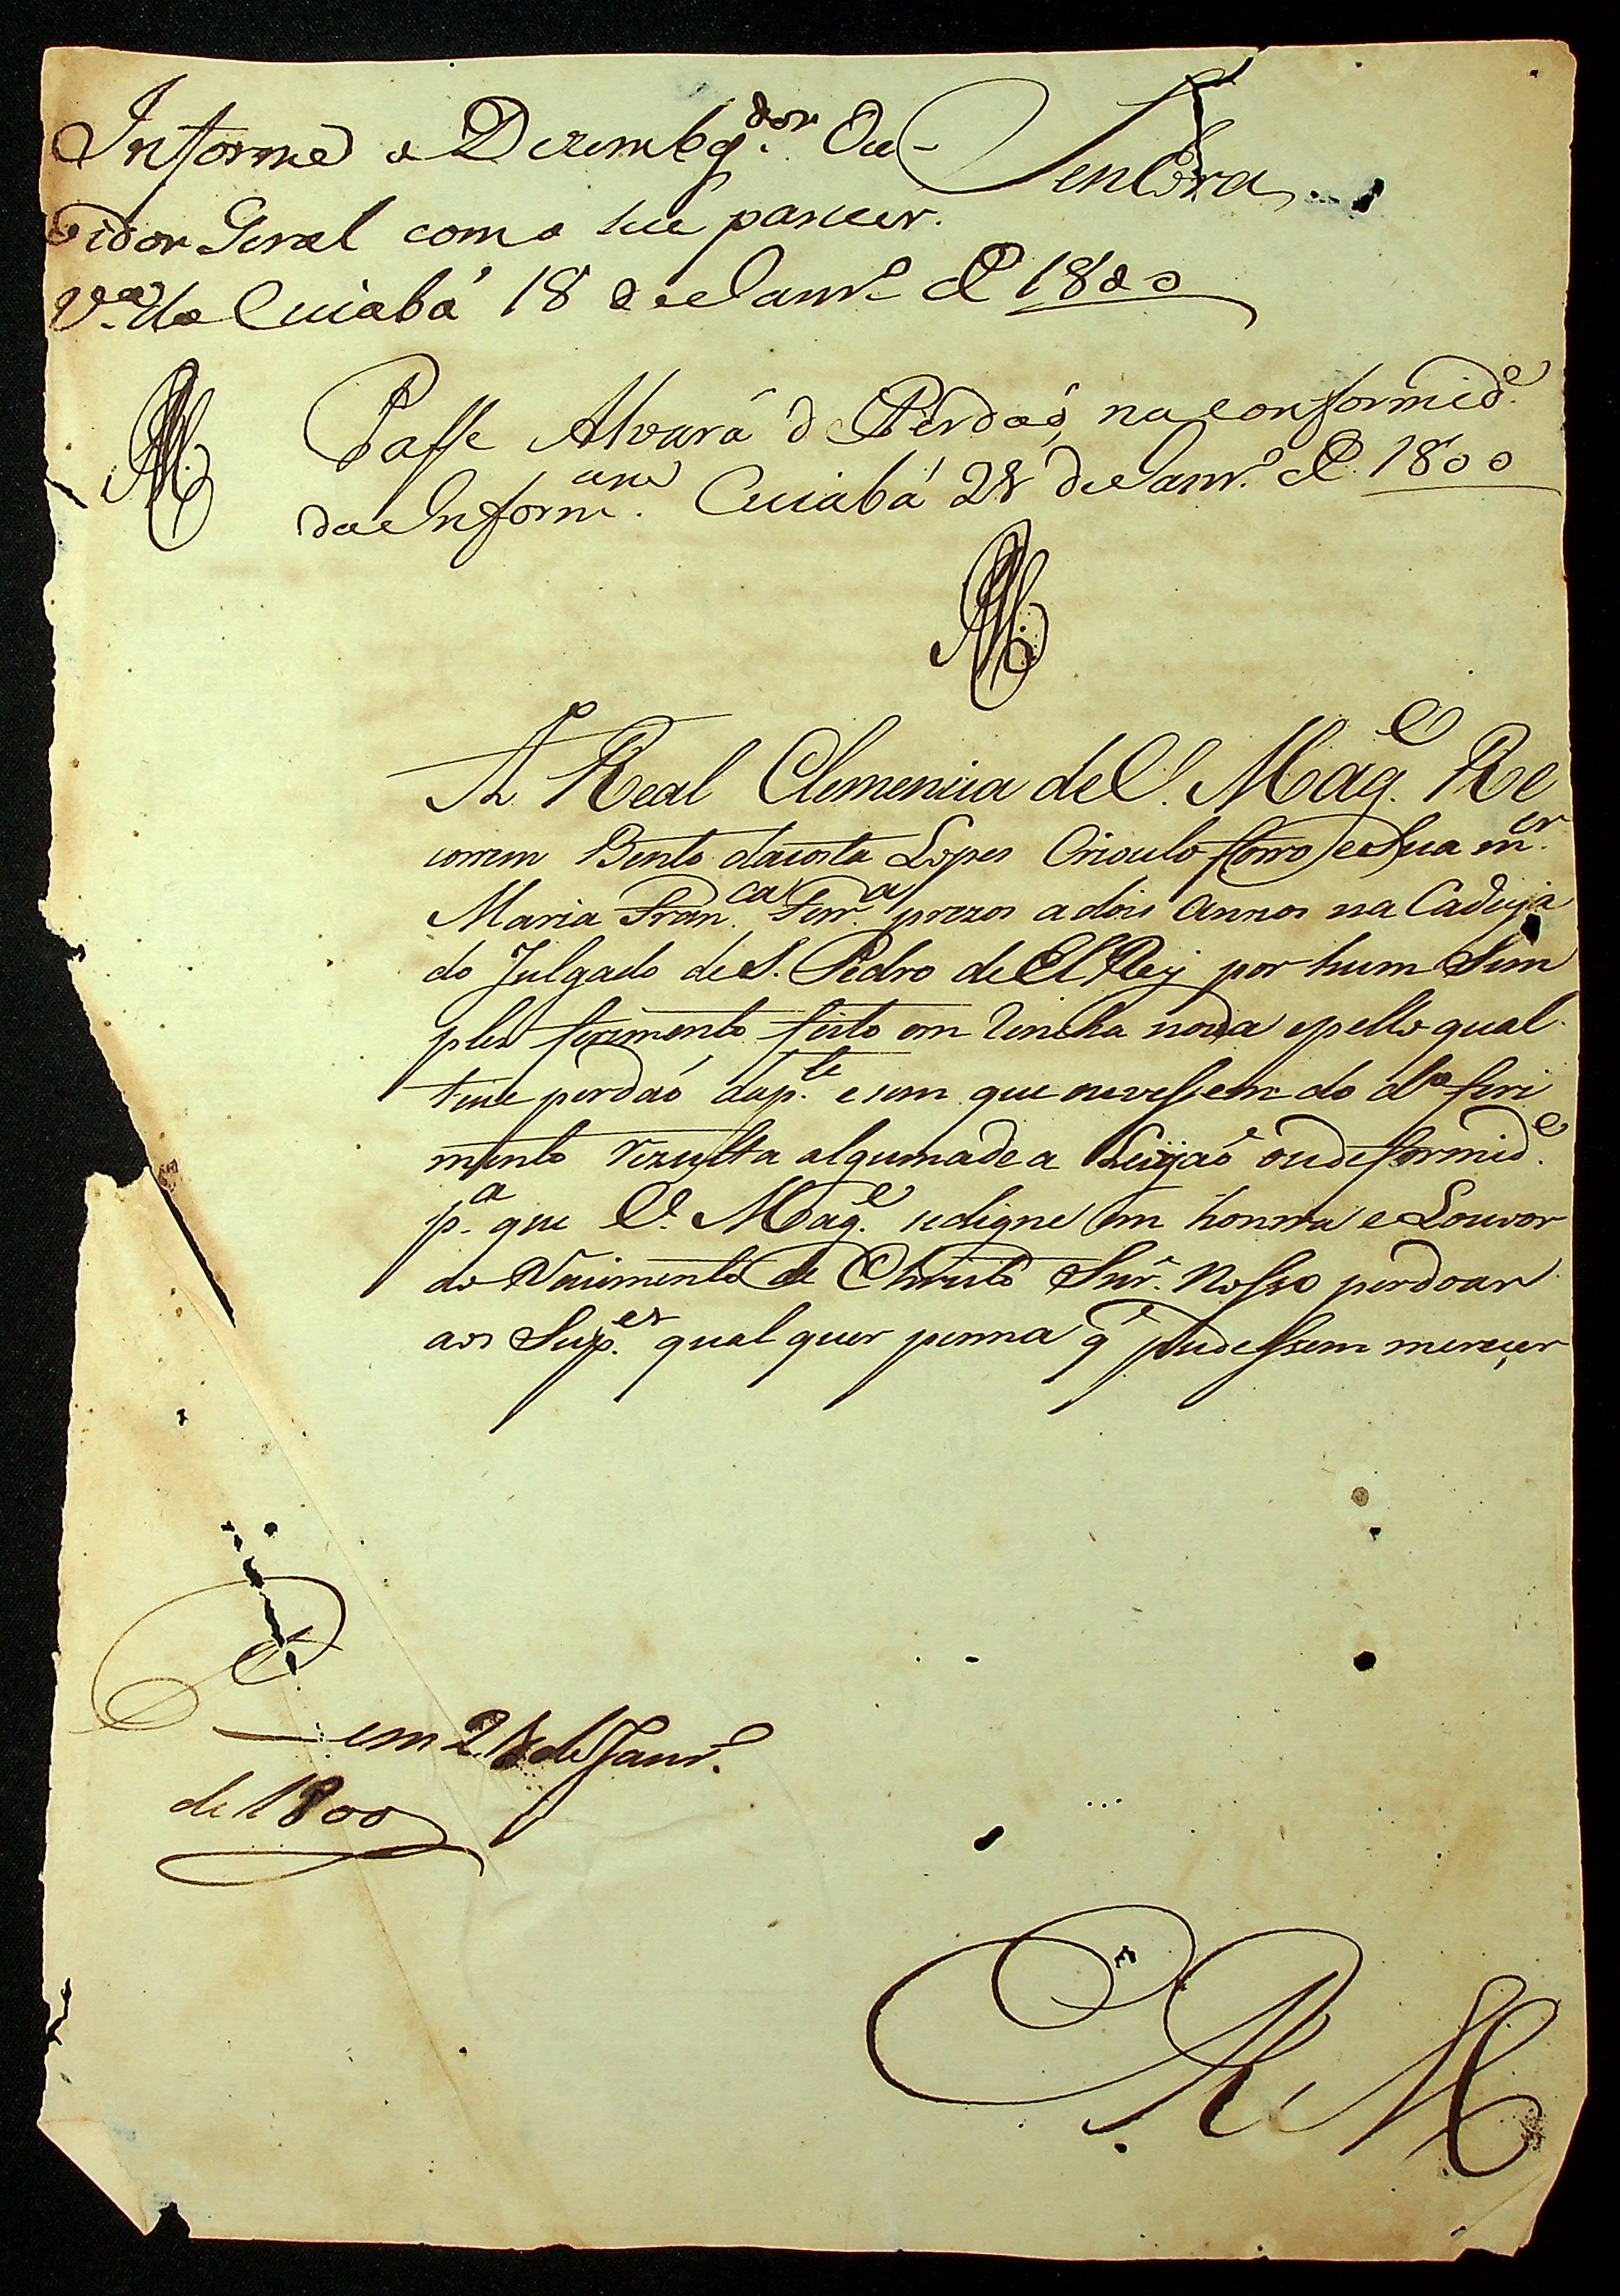 Senhora
Informe o Dezembg.dor Ou-
vidor Geral com o seu parecer.
V.a do Cuiabá 18 de Janr.o de 1800
Passe Alvará de Perdaõ, na conformid.e
da Inform.
Cuiabá 28 de Janr.o de 1800
A Real Clemencia de V. Mag.e Re
correm Bento da costa Lopes Crioulo forro e Sua m.er
Maria Fran.ca Ferr.a prezos a dois Annos na Cadeya
do Julgado de S. Pedro de El Rey por hum Sim
ples ferimento feito em rincha nova e pello qual
tem perdaó da p.te e sem que ouvessem do d.o feri
mento rezulta alguma de a Leijaõ ou deformid.e
p.a que V. Mag.e se digne em honrra e Louvor
do Nacimento de Christo Snr. Nosso perdoar
aos Sup.es qual quer penna q̃ pudessem merecer
P
em 28 de Janr.o
de 1800
E R M